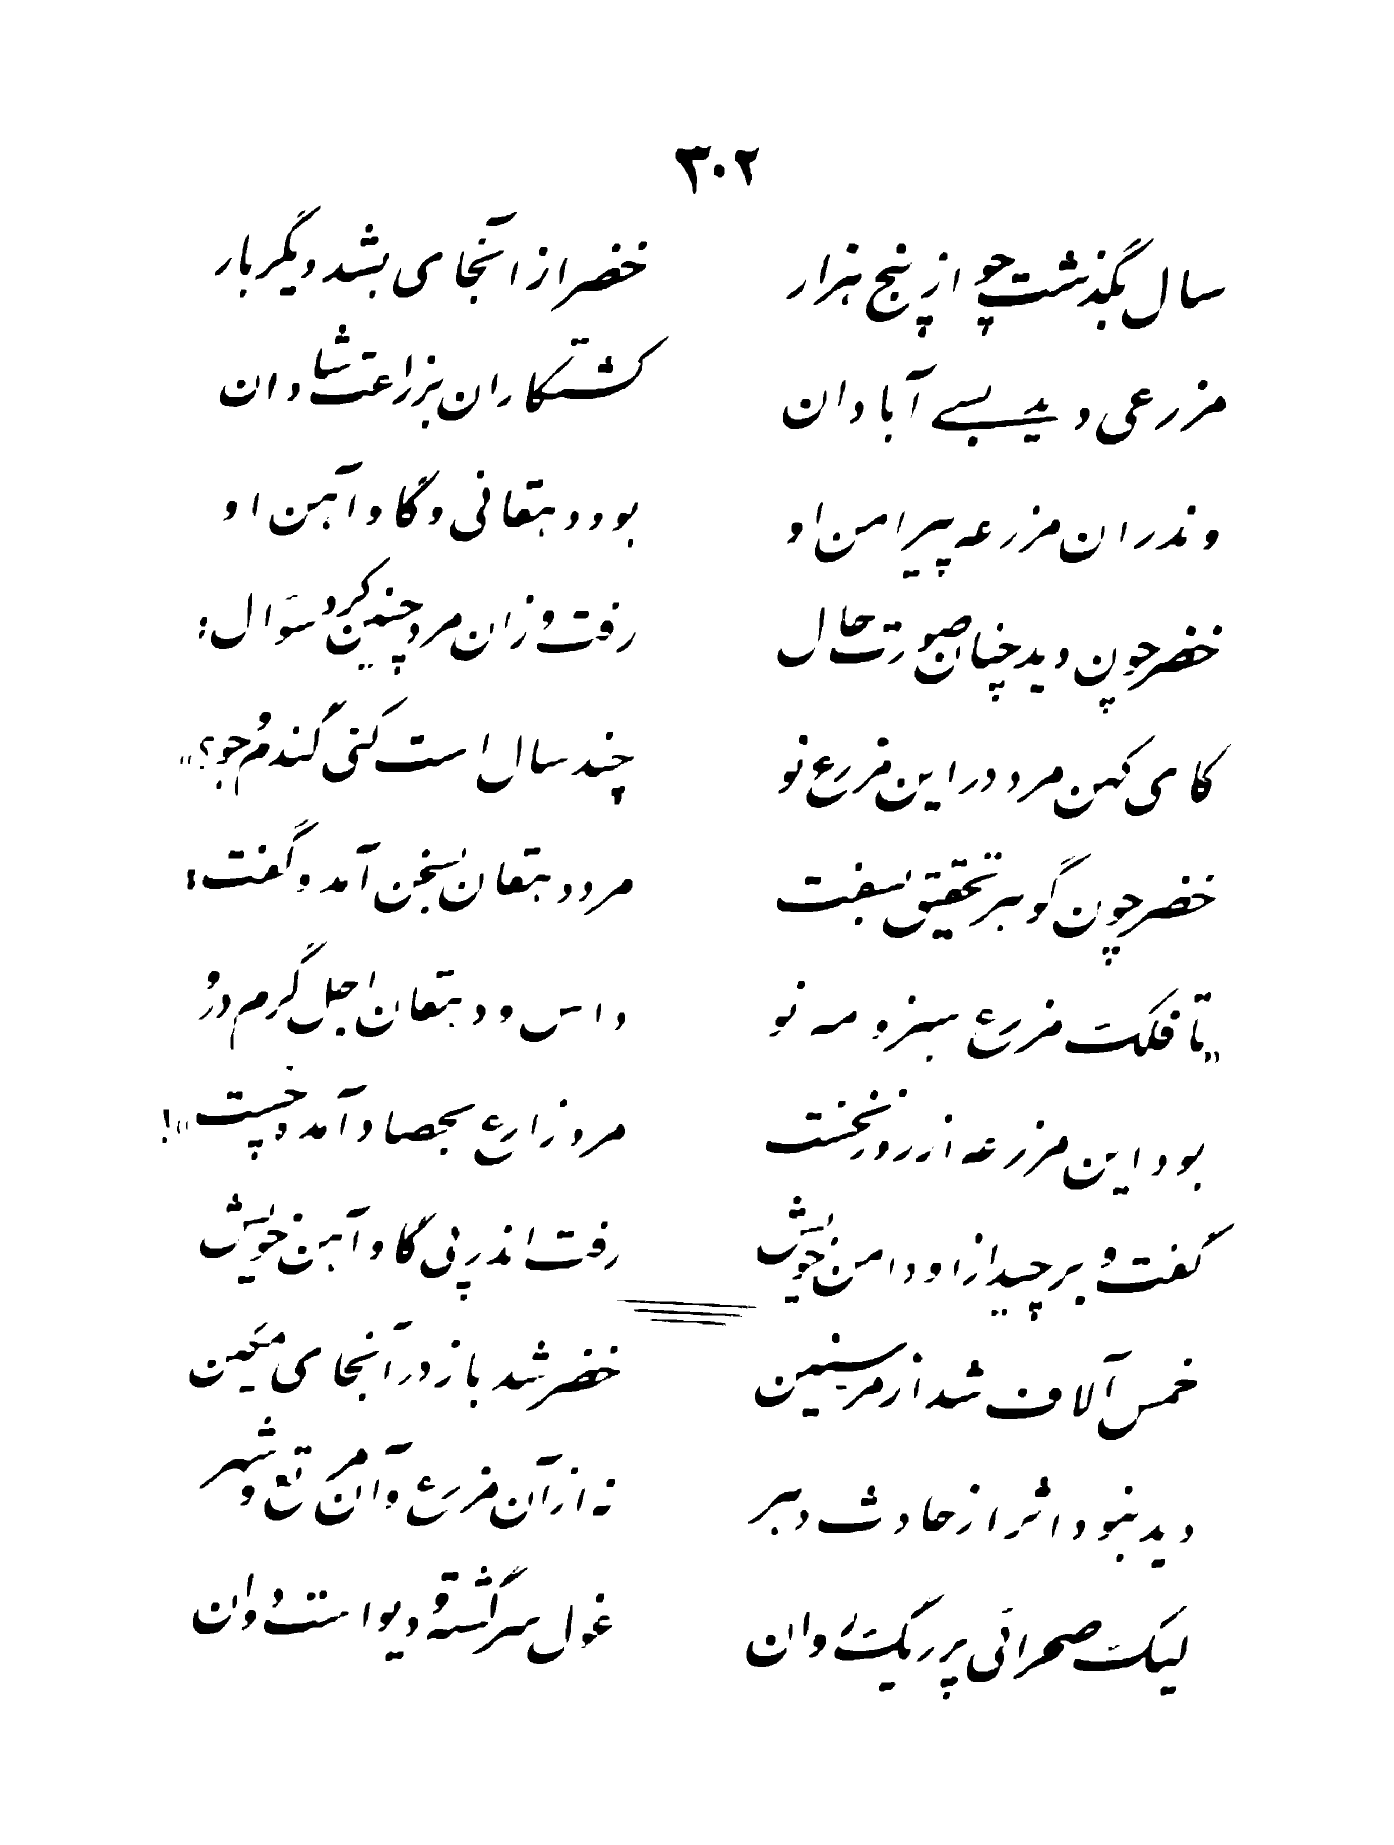 ۳۰۲
سال بگذشت چو از پنج هزار خضر از آنجای بشد دیگر بار
مزرعی دید بسے آبادان کشتکاران بزراعت شادان
وندران مزرعه پیرامن او بود دهقانی و گاو آهن او
خضر چون دید چنان صورت حال رفت و زان مرد چنین کرد سؤال:
کای کهن مرد در این مزرع نو چند سال است کنی گندم و جو؟»
خضر چون گوهر تحقیق بسفت مرد دهقان بسخن آمد و گفت:
«تا فلک مزرع سبز و مه نو داس و دهقان اجل گرم درو
بود این مزرعه از روز نخست مرد زارع بحصاد آمد و چست»!
گفت و برچید از او دامن خویش رفت اندر پی گاو آهن خویش
خمس آلاف شد از مر سنین خضر شد باز در آنجای مکین
دید نبود اثر از حادث دهر نه از آن مزرع و آن مرتع و شهر
لیک صحرائی پر ریگ روان غول سرگشته و دیو است دوان